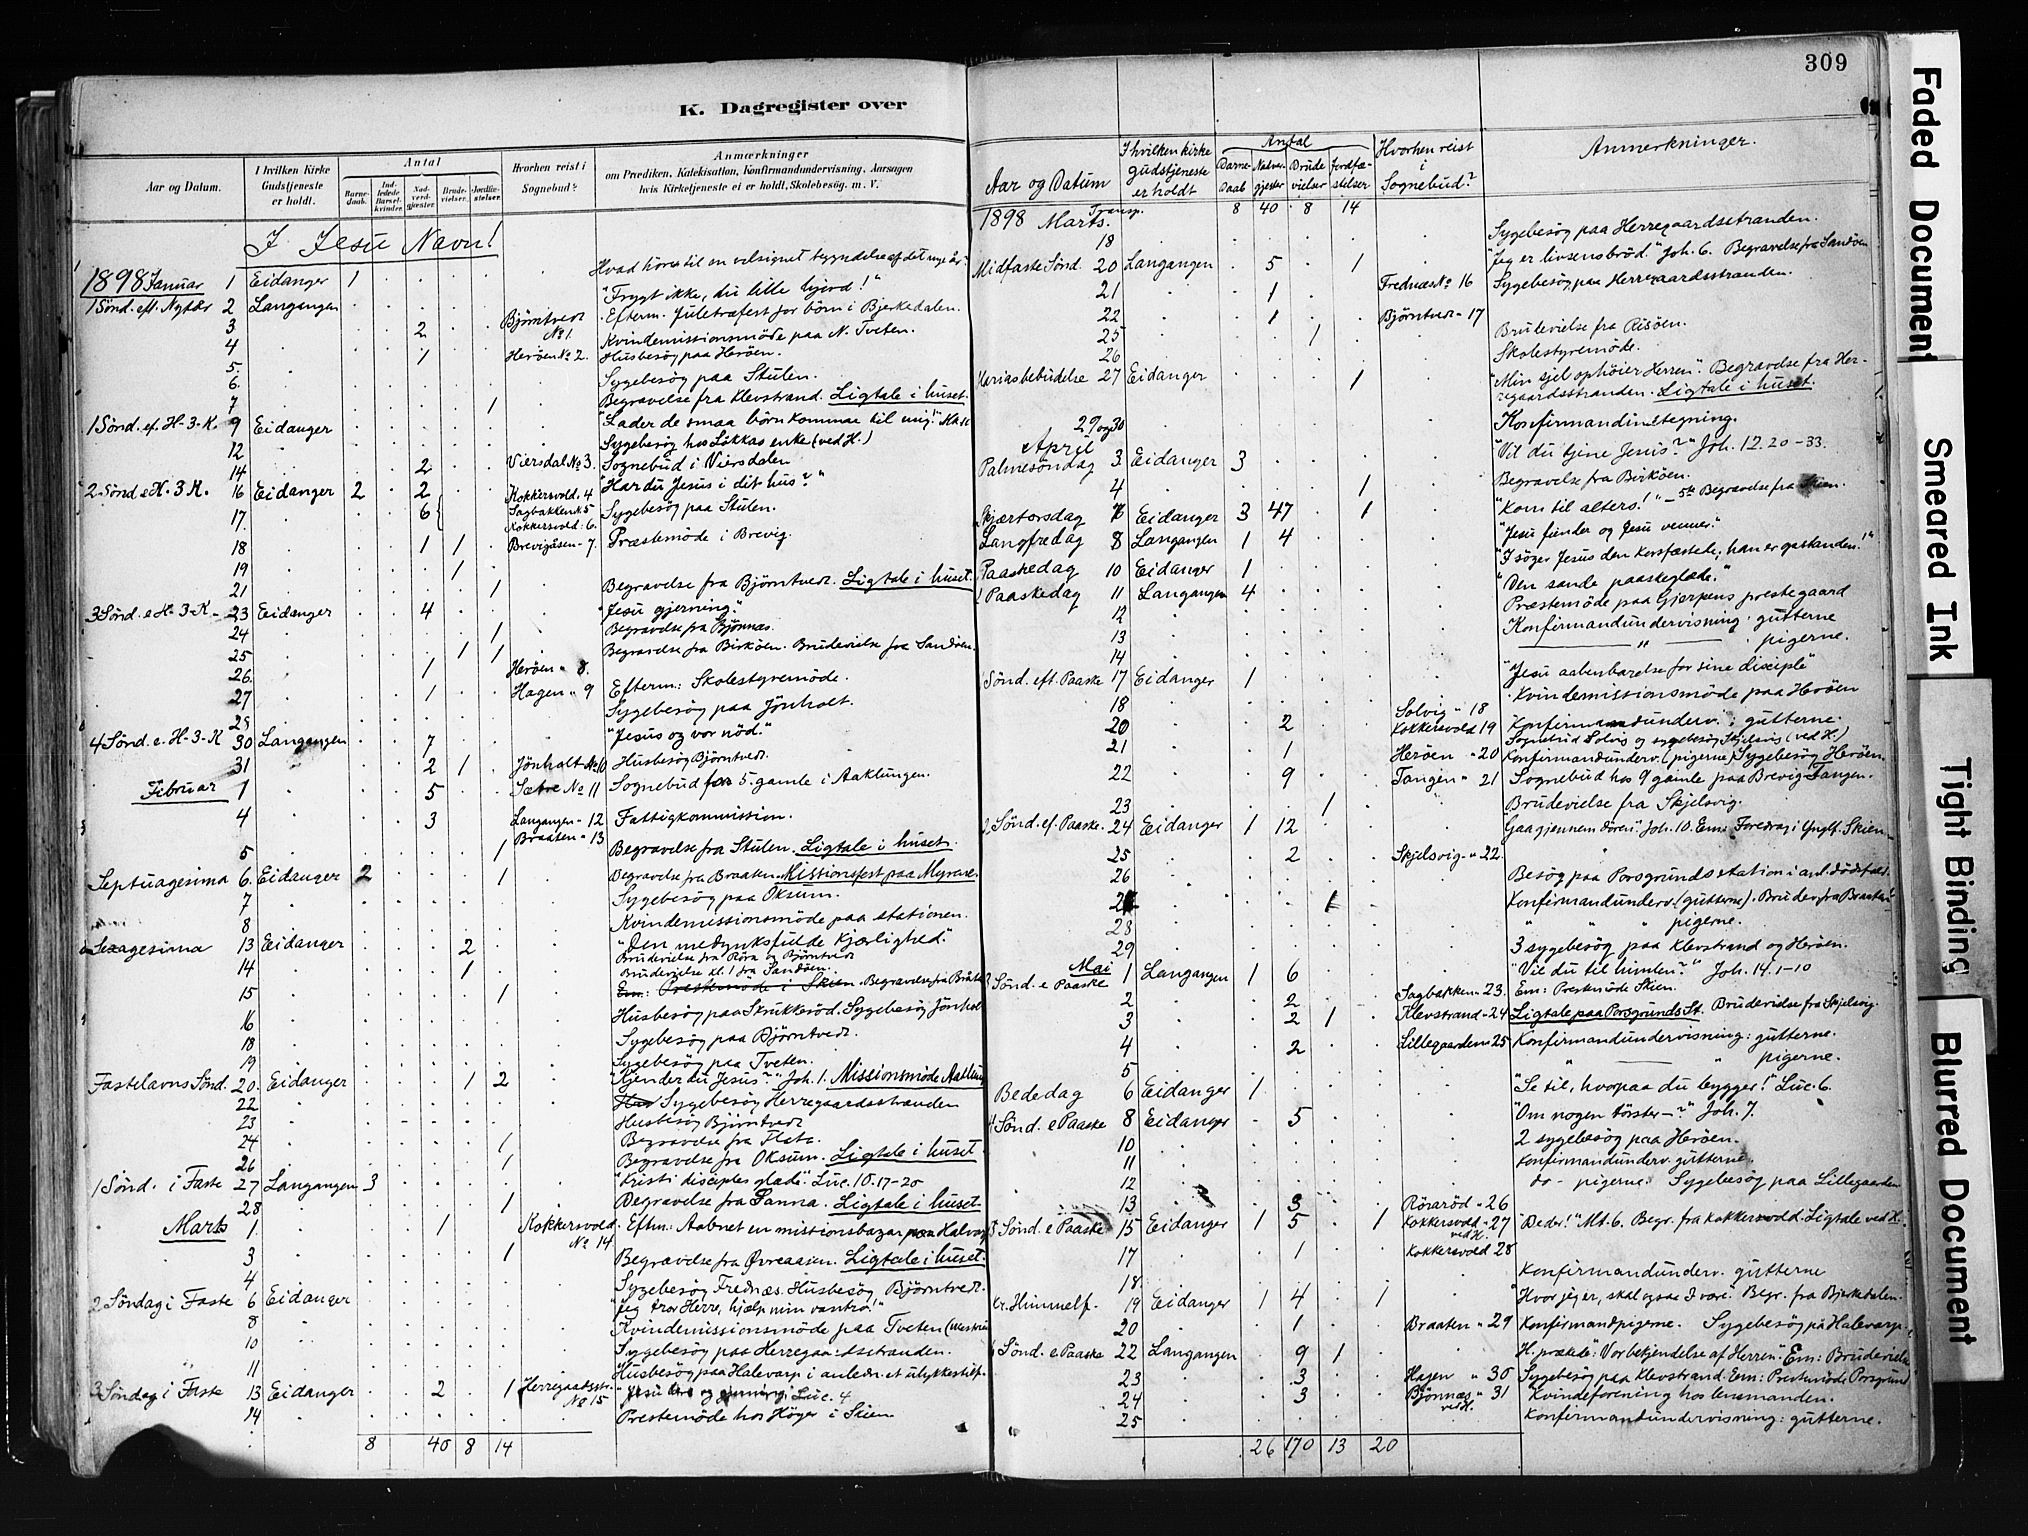 K. Dagregister over
Aar og Datum.
I hvilken Kirke Gudstjeneste er holdt.
Antal
Barne-daab.
Ind-ledede Barsel-kvinder.
Nad-verd-gjæster.
Brude-vielser.
Jordfæ-stelser.
Hvorhen reist i Sognebud?
Anmærkninger
om Prædiken, Katekisation, Konfirmandundervisning, Aarsagen
hvis Kirketjeneste ei er holdt, Skolebesøg. m. V.
I Jesu Navn!
Hvad hører til en velsignet begyndelse af det nye år?
1898 Januar 1 Eidanger 1
1 Sönd. eft. Nytår 2 Langangen "Frygt ikke, du lille hjord!"
3 2 Björntvedt No 1. Efterm. Juletræfest for börn i Bjerkedalen.
4 1 Heröen No 2. Kvindemissionsmöde paa N. Tveten.
5. Husbesög paa Heröen.
6. Sygebesög paa Stulen.
7 1 Begravelse fra Klevstrand. Ligtale i huset.
1 Sönd. ef. H-3-K. 9 Eidanger "Lader de smaa börn komme til mig!"
12 Sygebesög hos Lökkas enke (ved H.)
14 2 Viersdal No 3. Sognebud i Viersdalen
2 Sönd e H. 3 K. 16 Eidanger 2 2 Kokkersvold. 4 "Har du Jesus i dit hus?"
17. 6 Sagbakken N. 5 Kokkersvold. 6. Sygebesög paa Stulen.
18 1 1 Brevigåsen - 7. Præstemöde i Brevig.
19 1
21 1 Begravelse fra Björntvedt. Ligtale i huset.
3 Sönd. e H- 3-K- 23 Eidanger 4 "Jesu gjerning."
24 1 Begravelse fra Bjönnæs.
25 1 1 Begravelse fra Birköen. Brudevielse fra Sandöen.
26. 1 Heröen " 8.
27 1 Hagen " 9 Efterm: Skolestyremöde.
Sygebesög paa Jönholt.
4 Sönd. e. H-3-K 30 Langangen 7 "Jesus og vor nöd."
31 2 1 Jönholt No 10 Husbesög Björntvedt.
Februar 1 5 Sætre No 11 Sognebud for 5 gamle i Aaklungen.
4 3 Langangen - 12 Braaten - 13 Fattigkommission.
5 1 Begravelse fra Stulen. Ligtale i huset.
Septuagesima 6. Eidanger 2 1 Begravelse fra Braaten. Missionsfest paa Myrene.
7 Sygebesög paa Oksum.
8 Kvindemissionsmöde paa stationen.
Sexagesima 13 Eidanger 2 "Den medynksfulde Kjærlighed."
Brudevielse fra Röra og Björntvedt
14 1 Brudevielse kl. 1 fra Sandöen.
15 1 Em: Prestemöde i Skien.
16 Husbesög paa Strukkeröd. Sygebesög Jönholt
18 Sygebesög paa Björntvedt.
19 Sygebesög paa Tveten.
Fastelavns Sönd. 20. Eidanger 1 2 "Kjender du Jesus?" Joh. 1. Missionsmöde Aaklung
22 Sygebesög Herregaardsstranden
23 Husbesög Björntvedt
24 1 Begravelse fra Flata.
26 1 Begravelse fra Oksum. Ligtale i huset.
1 Sönd. i Faste 27 Langangen 3 "Kristi disciples glæde". Luc. 10. 17-20
28 1 Begravelse fra Sanna. Ligtale i huset.
Marts 1. 1 Kokkersvold No 14 Eftm: Aabnet en missionsbazar paa Halvarp
3 1 Begravelse fra Övreaasen. Ligtale i huset.
4 Sygebesög Frednæs. Husbesög Björntvedt.
2 Söndag i Faste 6 Eidanger "Jeg tror Herre, hjælp min vantro!"
8 Kvindemissionsmöde paa Tveten
10 Sygebesög paa Herregaardsstranden.
11 Husbesög paa Halevarp i anledn. et ulykkestilf.
3 Söndag i Faste 13 Eidanger 2 1 Herregaardsstr. No 15 Luc. 4
14 Prestemöde hos Höyer i Skien
8 40 8 14
309
Aar og Datum
I hvilken kirke gudstjeneste er holdt
Antal
Barne-daab
Natver-gjester
Brude vielser
Jordfæ-stelser
Hvorhen reist i Sognebud?
Anmerkninger.
1898 Marts. Transp. 8 40 8 14
18 Sygebesög paa Herregaardsstranden.
Midfaste Sönd. 20 Langangen 5 1 "Jeg er livsens bröd." Joh. 6. Begravelse fra Sandöen
21 1 Frednæs No 16 Sygebesög paa Herregaardsstranden.
22 1 Björntvedt - 17
25 1 Brudevielse fra Risöen.
26 Skolestyremöde.
Mariæ bebudelse 27 Eidanger 1 "Min sjel ophöier Herren". Begravelse fra Her-
regaardsstranden. Ligtale i huset.
29 og 30 Konfirmandindtegning.
April
Palmesöndag 3 Eidanger 3 "Vil du tjene Jesus?" Joh. 12. 20-33.
4 1 Begravelse fra Birköen.
Skjærtorsdag 7 Eidanger 3 47 1 "Kom til alters!" Begravelse fra
Langfredag 8 Langangen 1 4 "Jesu fiender og Jesu venner."
Paaskedag 10 Eidanger 1 "I söger Jesus den korsfæstede; han er opstanden!"
2 Paaskedag 11 Langangen 4 "Den sande paaskeglæde."
12 Præstemöde paa Gjerpens prestegaard
13 Konfirmandundervisning: gutterne
14 " pigerne.
1 Sönd. eft. Paaske 17 Eidanger 1 "Jesu aabenbarelse for sine disciple"
18 Kvindemissionsmöde paa Heröen
20 2 Solvig " 18 Kokkersvold 19 Konfirmandunderv.; gutterne.
Sognebud Solvig og sygebesög Skjelsvig (ved H.)
21 1 Heröen " 20 Konfirmandunderv. (pigerne) Sygebesög Heröen.
22 9 Tangen " 21 Sognebud hos 9 gamle paa Brevig Tangen.
23 1 Brudevielse fra Skjelsvig.
2 Sönd. ef. Paaske. 24 Eidanger 1 12 Gaa gjennem dören! Joh. 10. Em: Foredrag i Ynglf. Skien
25 2 Skjelsvig - " 22.
26 Besög paa Porsgrunds station i anl. dödsfald.
27 1 Konfirmandunderv. (gutterne). Brudev. fra Braaten
28 " " pigerne.
29 3 sygebesög paa Klevstrand og Heröen.
Mai
3 Sönd. e Paaske 1 Langangen 1 6 "Vil du til himlen?" Joh. 14. 1-10
2 2 Sagbakken " 23. Em: Prestemöde Skien.
3 2 1 Klevstrand " 24 Ligtale paa Porsgrunds St. Brudevielse fra Skjelsvig.
4 2 Lillegaarden 25 Konfirmandundervisning: gutterne.
5 " " pigerne.
Bededag 6 Eidanger 1 "Se til, hvorpaa du bygger!" Luc. 6.
4 Sönd. e Paaske 8 Eidanger 5 "Om nogen törster -?" Joh. 7.
10 2 sygebesög paa Heröen.
11 Konfirmandunderv. gutterne.
12 do - pigerne. Sygebesög paa Lillegaarden
13 3 Röraröd " 26
5 Sönd. e Paaske 15 Eidanger 1 5 1 Kokkersvold " 27 ved H. "Beder!" Mt. 6. Begr. fra Kokkersvold. Ligtale ved H.
17 1 Kokkersvold 28
18 Konfirmandunderv. gutterne
Kr. Himmelf. 19 Eidanger 1 4 1 "Hvor jeg er, skal ogsaa I være. Begr. fra Bjerkedalen.
20 1 Braaten " 29 Konfirmandpigerne. Sygebesög på Halevarp.
6 Sönd. e Paaske 22 Langangen 9 1 H. præke: Vor bekjendelse af Herren." Em: Brudevielse
23 3 Hagen " 30 Sygebesög paa Klevstrand. Em: Prestemöde Porsgrund
24 3 Bjönnæs " 31 ved H. Kvindeforening hos lensmanden.
25 Konfirmandundervisning: gutterne.
26 170 13 20
Faded Document
Smeared Ink
Tight Binding
Blurred Document